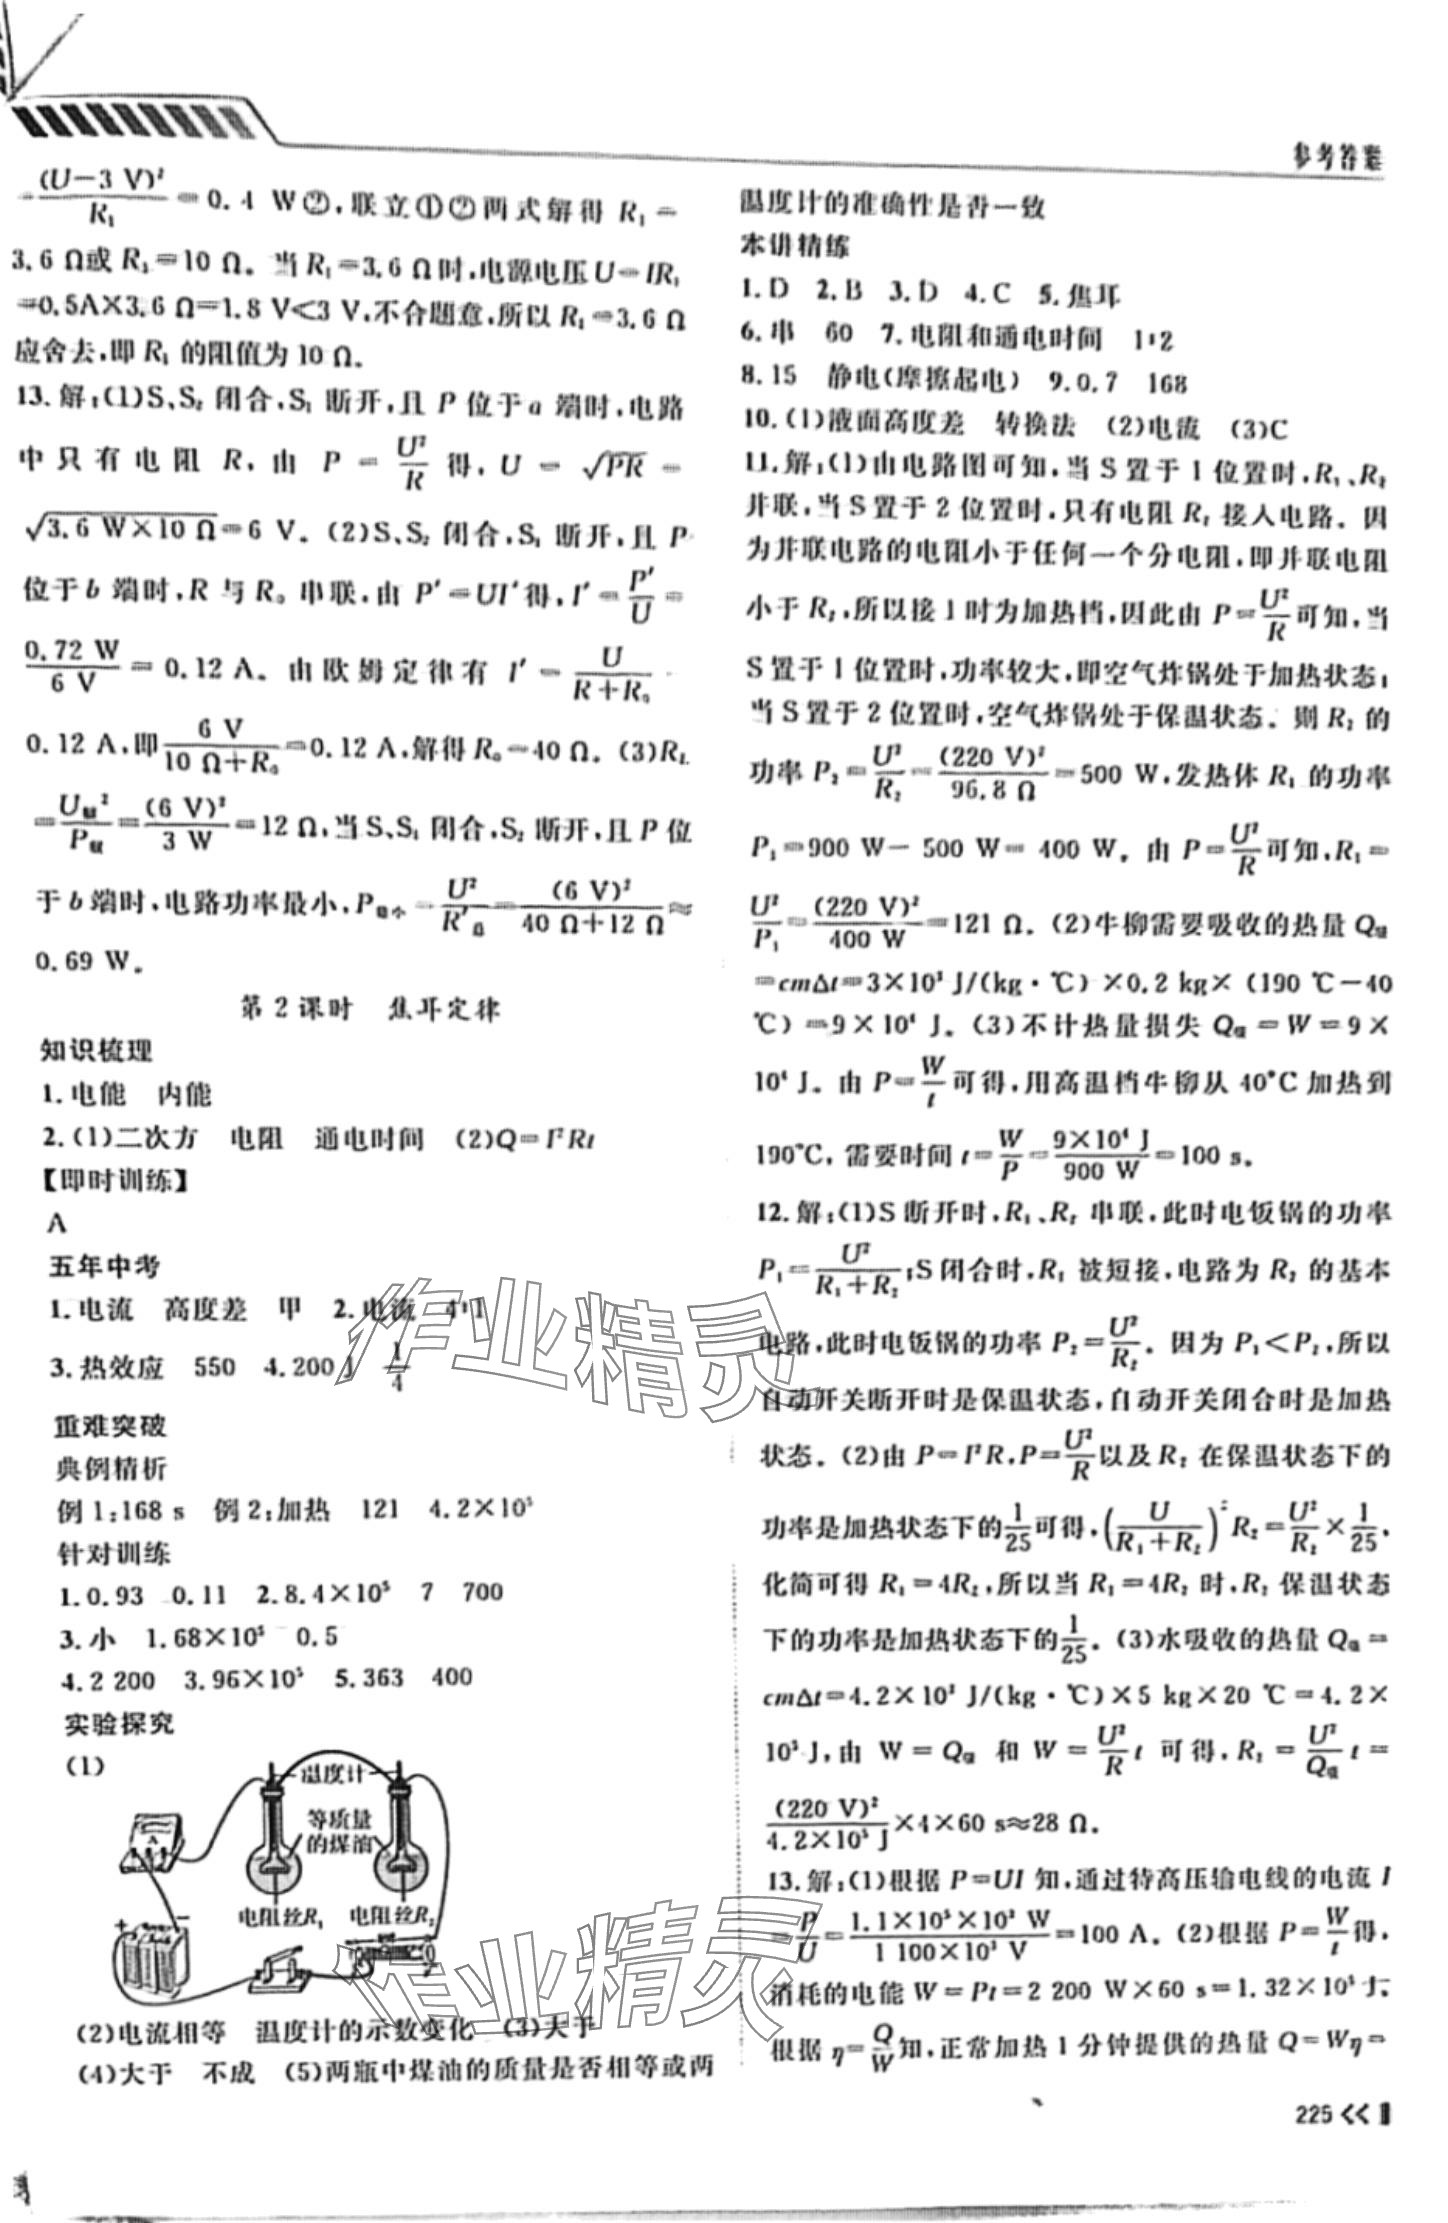 参考答案
=(U-3 V)²/R₁=0.4 W②,联立①②两式解得 R₁=
3.6 Ω或 R₁=10 Ω。当 R₁=3.6 Ω时,电源电压 U=IR₁
=0.5A×3.6 Ω=1.8 V<3 V,不合题意,所以 R₁=3.6 Ω
应舍去,即 R₁ 的阻值为 10 Ω。
13.解:(1)S、S₂ 闭合,S₁ 断开,且 P 位于 a 端时,电路
中只有电阻 R,由 P=U²/R 得,U=√PR=
√3.6 W×10 Ω=6 V。(2)S、S₂ 闭合,S₁ 断开,且 P
位于 b 端时,R 与 R₀ 串联,由 P′=UI′得,I′=P′/U=
0.72 W/6 V=0.12 A。由欧姆定律有 I′=U/(R+R₀)=
0.12 A,即 6 V/(10 Ω+R₀)=0.12 A,解得 R₀=40 Ω。(3)R_L
=U额²/P额=(6 V)²/3 W=12 Ω,当 S、S₁ 闭合,S₂ 断开,且 P 位
于 b 端时,电路功率最小,P最小=U²/R′总=(6 V)²/(40 Ω+12 Ω)≈
0.69 W。
第 2 课时 焦耳定律
知识梳理
1.电能 内能
2.(1)二次方 电阻 通电时间 (2)Q=I²Rt
【即时训练】
A
五年中考
1.电流 高度差 甲 2.电流 4:1
3.热效应 550 4.200 J 1/4
重难突破
典例精析
例 1:168 s 例 2:加热 121 4.2×10⁵
针对训练
1.0.93 0.11 2.8.4×10⁵ 7 700
3.小 1.68×10⁵ 0.5
4.2 200 3.96×10⁵ 5.363 400
实验探究
(1)
温度计
等质量
的煤油
A
电阻丝R₁ 电阻丝R₂
+ −
(2)电流相等 温度计的示数变化 (3)大于
(4)大于 不成 (5)两瓶中煤油的质量是否相等或两
温度计的准确性是否一致
本讲精练
1.D 2.B 3.D 4.C 5.焦耳
6.串 60 7.电阻和通电时间 1:2
8.15 静电(摩擦起电) 9.0.7 168
10.(1)液面高度差 转换法 (2)电流 (3)C
11.解:(1)由电路图可知,当 S 置于 1 位置时,R₁、R₂
并联,当 S 置于 2 位置时,只有电阻 R₂ 接入电路。因
为并联电路的电阻小于任何一个分电阻,即并联电阻
小于 R₂,所以接 1 时为加热档,因此由 P=U²/R可知,当
S 置于 1 位置时,功率较大,即空气炸锅处于加热状态;
当 S 置于 2 位置时,空气炸锅处于保温状态。则 R₂ 的
功率 P₂=U²/R₂=(220 V)²/96.8 Ω=500 W,发热体 R₁ 的功率
P₁=900 W-500 W=400 W。由 P=U²/R可知,R₁=
U²/P₁=(220 V)²/400 W=121 Ω。(2)牛柳需要吸收的热量 Q吸
=cmΔt=3×10³ J/(kg·℃)×0.2 kg×(190 ℃-40
℃)=9×10⁴ J。(3)不计热量损失 Q吸=W=9×
10⁴ J。由 P=W/t可得,用高温档牛柳从 40℃加热到
190℃,需要时间 t=W/P=9×10⁴ J/900 W=100 s。
12.解:(1)S 断开时,R₁、R₂ 串联,此时电饭锅的功率
P₁=U²/(R₁+R₂);S 闭合时,R₁ 被短接,电路为 R₂ 的基本
电路,此时电饭锅的功率 P₂=U²/R₂。因为 P₁<P₂,所以
自动开关断开时是保温状态,自动开关闭合时是加热
状态。(2)由 P=I²R,P=U²/R以及 R₂ 在保温状态下的
功率是加热状态下的1/25可得,(U/(R₁+R₂))²R₂=U²/R₂×1/25,
化简可得 R₁=4R₂,所以当 R₁=4R₂ 时,R₂ 保温状态
下的功率是加热状态下的1/25。(3)水吸收的热量 Q吸=
cmΔt=4.2×10³ J/(kg·℃)×5 kg×20 ℃=4.2×
10⁵ J,由 W=Q吸 和 W=U²/R t 可得,R₂=U²/Q吸 t=
(220 V)²/4.2×10⁵ J×4×60 s≈28 Ω。
13.解:(1)根据 P=UI 知,通过特高压输电线的电流 I
=P/U=1.1×10⁵×10³ W/1 100×10³ V=100 A。(2)根据 P=W/t得,
消耗的电能 W=Pt=2 200 W×60 s=1.32×10⁵ J。
根据 η=Q/W知,正常加热 1 分钟提供的热量 Q=Wη=
225 <<
作业精灵
作业精灵